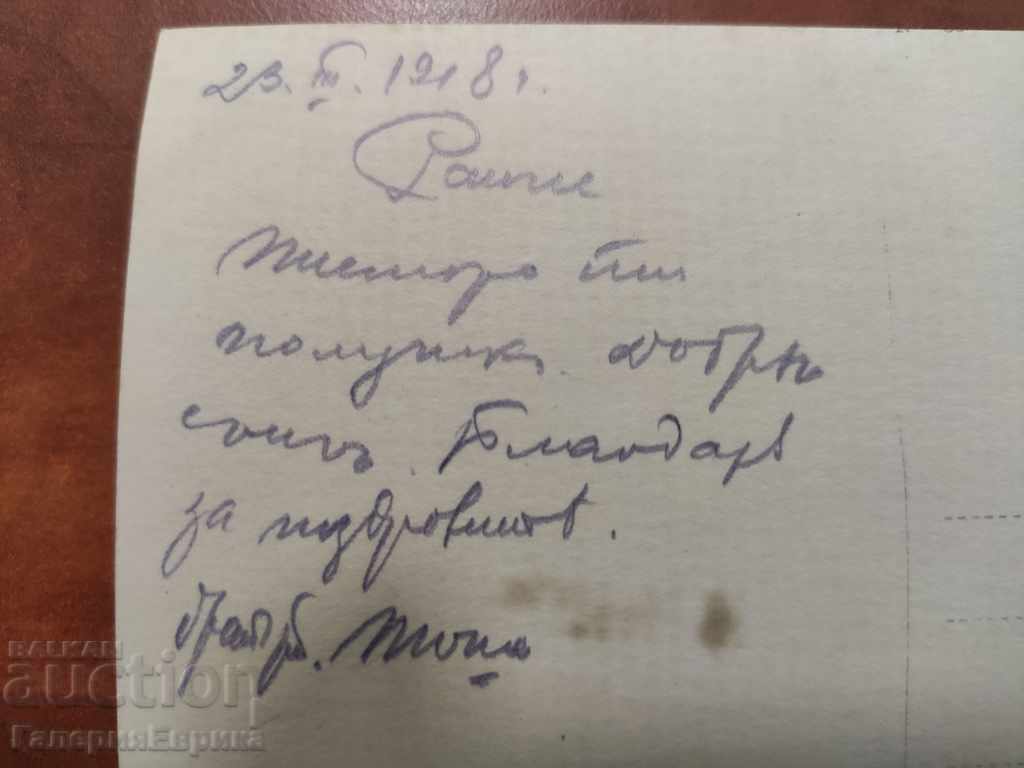 23. III. 1918 г.
Писмото ти
получих. добрѣ
съмъ. Благодарѣ
за поздравитѣ.
братъ
BALKAN
auction
ГалерияЕврика